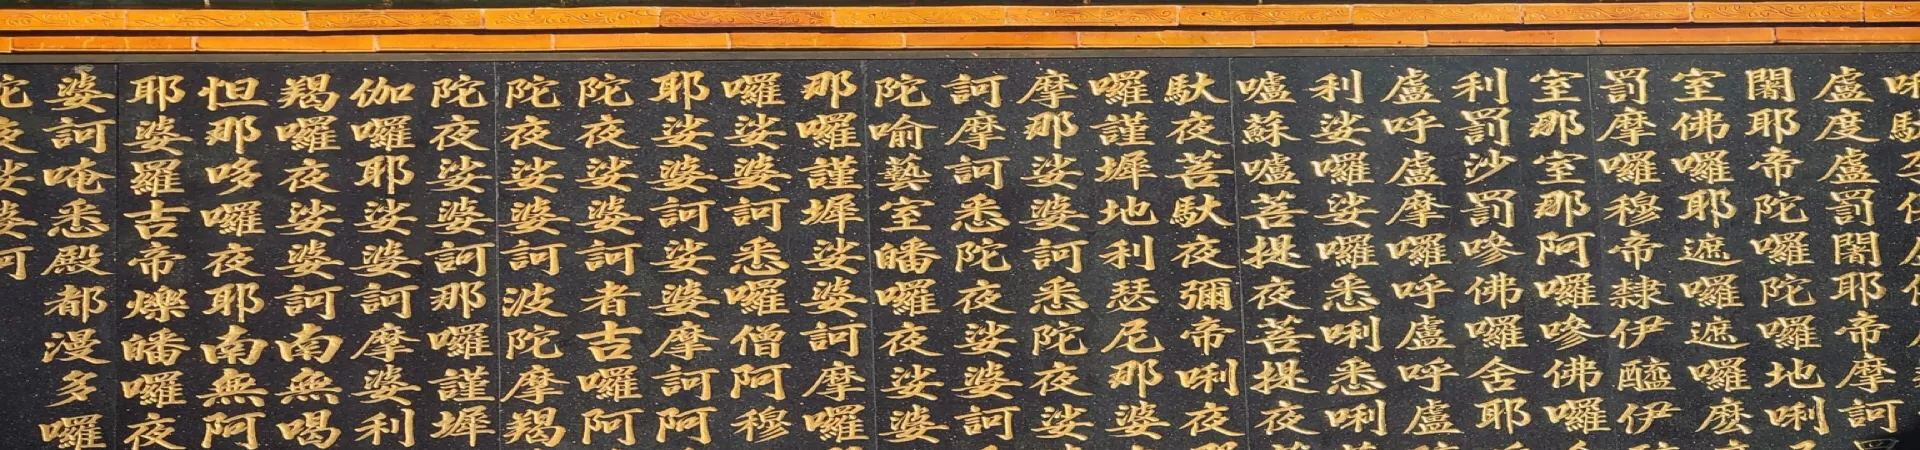 盧度盧罰闍耶帝摩訶
闍耶帝陀囉陀囉地唎
室佛囉耶遮囉遮囉麽
罰摩囉穆帝隸伊醯伊
室那室那阿囉嘇佛囉
利罰沙罰嘇佛囉舍耶
盧呼盧摩囉呼盧呼盧
利娑囉娑囉悉唎悉唎
嚧蘇嚧菩提夜菩提夜
馱夜菩馱夜彌帝唎夜
囉謹墀地利瑟尼那婆
摩那娑婆訶悉陀夜娑
訶摩訶悉陀夜娑婆訶
陀喻藝室皤囉夜娑婆
那囉謹墀娑婆訶摩囉
囉娑婆訶悉囉僧阿穆
耶娑婆訶娑婆摩訶阿
陀夜娑婆訶者吉囉阿
陀夜娑婆訶波陀摩羯
陀夜娑婆訶那囉謹墀
伽囉耶娑婆訶摩婆利
羯囉夜娑婆訶南無喝
怛那哆囉夜耶南無阿
耶婆羅吉帝爍皤囉夜
婆訶唵悉殿都漫多囉
陀夜娑婆訶